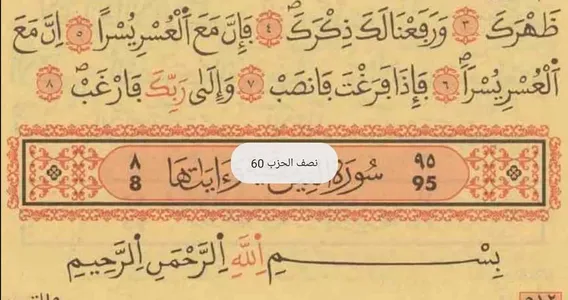 ظَهْرَكَ ٣ وَرَفَعْنَا لَكَ ذِكْرَكَ ٤ فَإِنَّ مَعَ اَلْعُسْرِ يُسْراً ٥ اِنَّ مَعَ
اَلْعُسْرِ يُسْراً ٦ فَإِذَا فَرَغْتَ فَانصَبْ ٧ وَإِلَىٰ رَبِّكَ فَارْغَبْ ٨
٩٥ سُورَةُ ءَايَاتُهَا ٨
95 8
نصف الحزب 60
بِسْمِ اِللَّهِ اِلرَّحْمَٰنِ اِلرَّحِيمِ